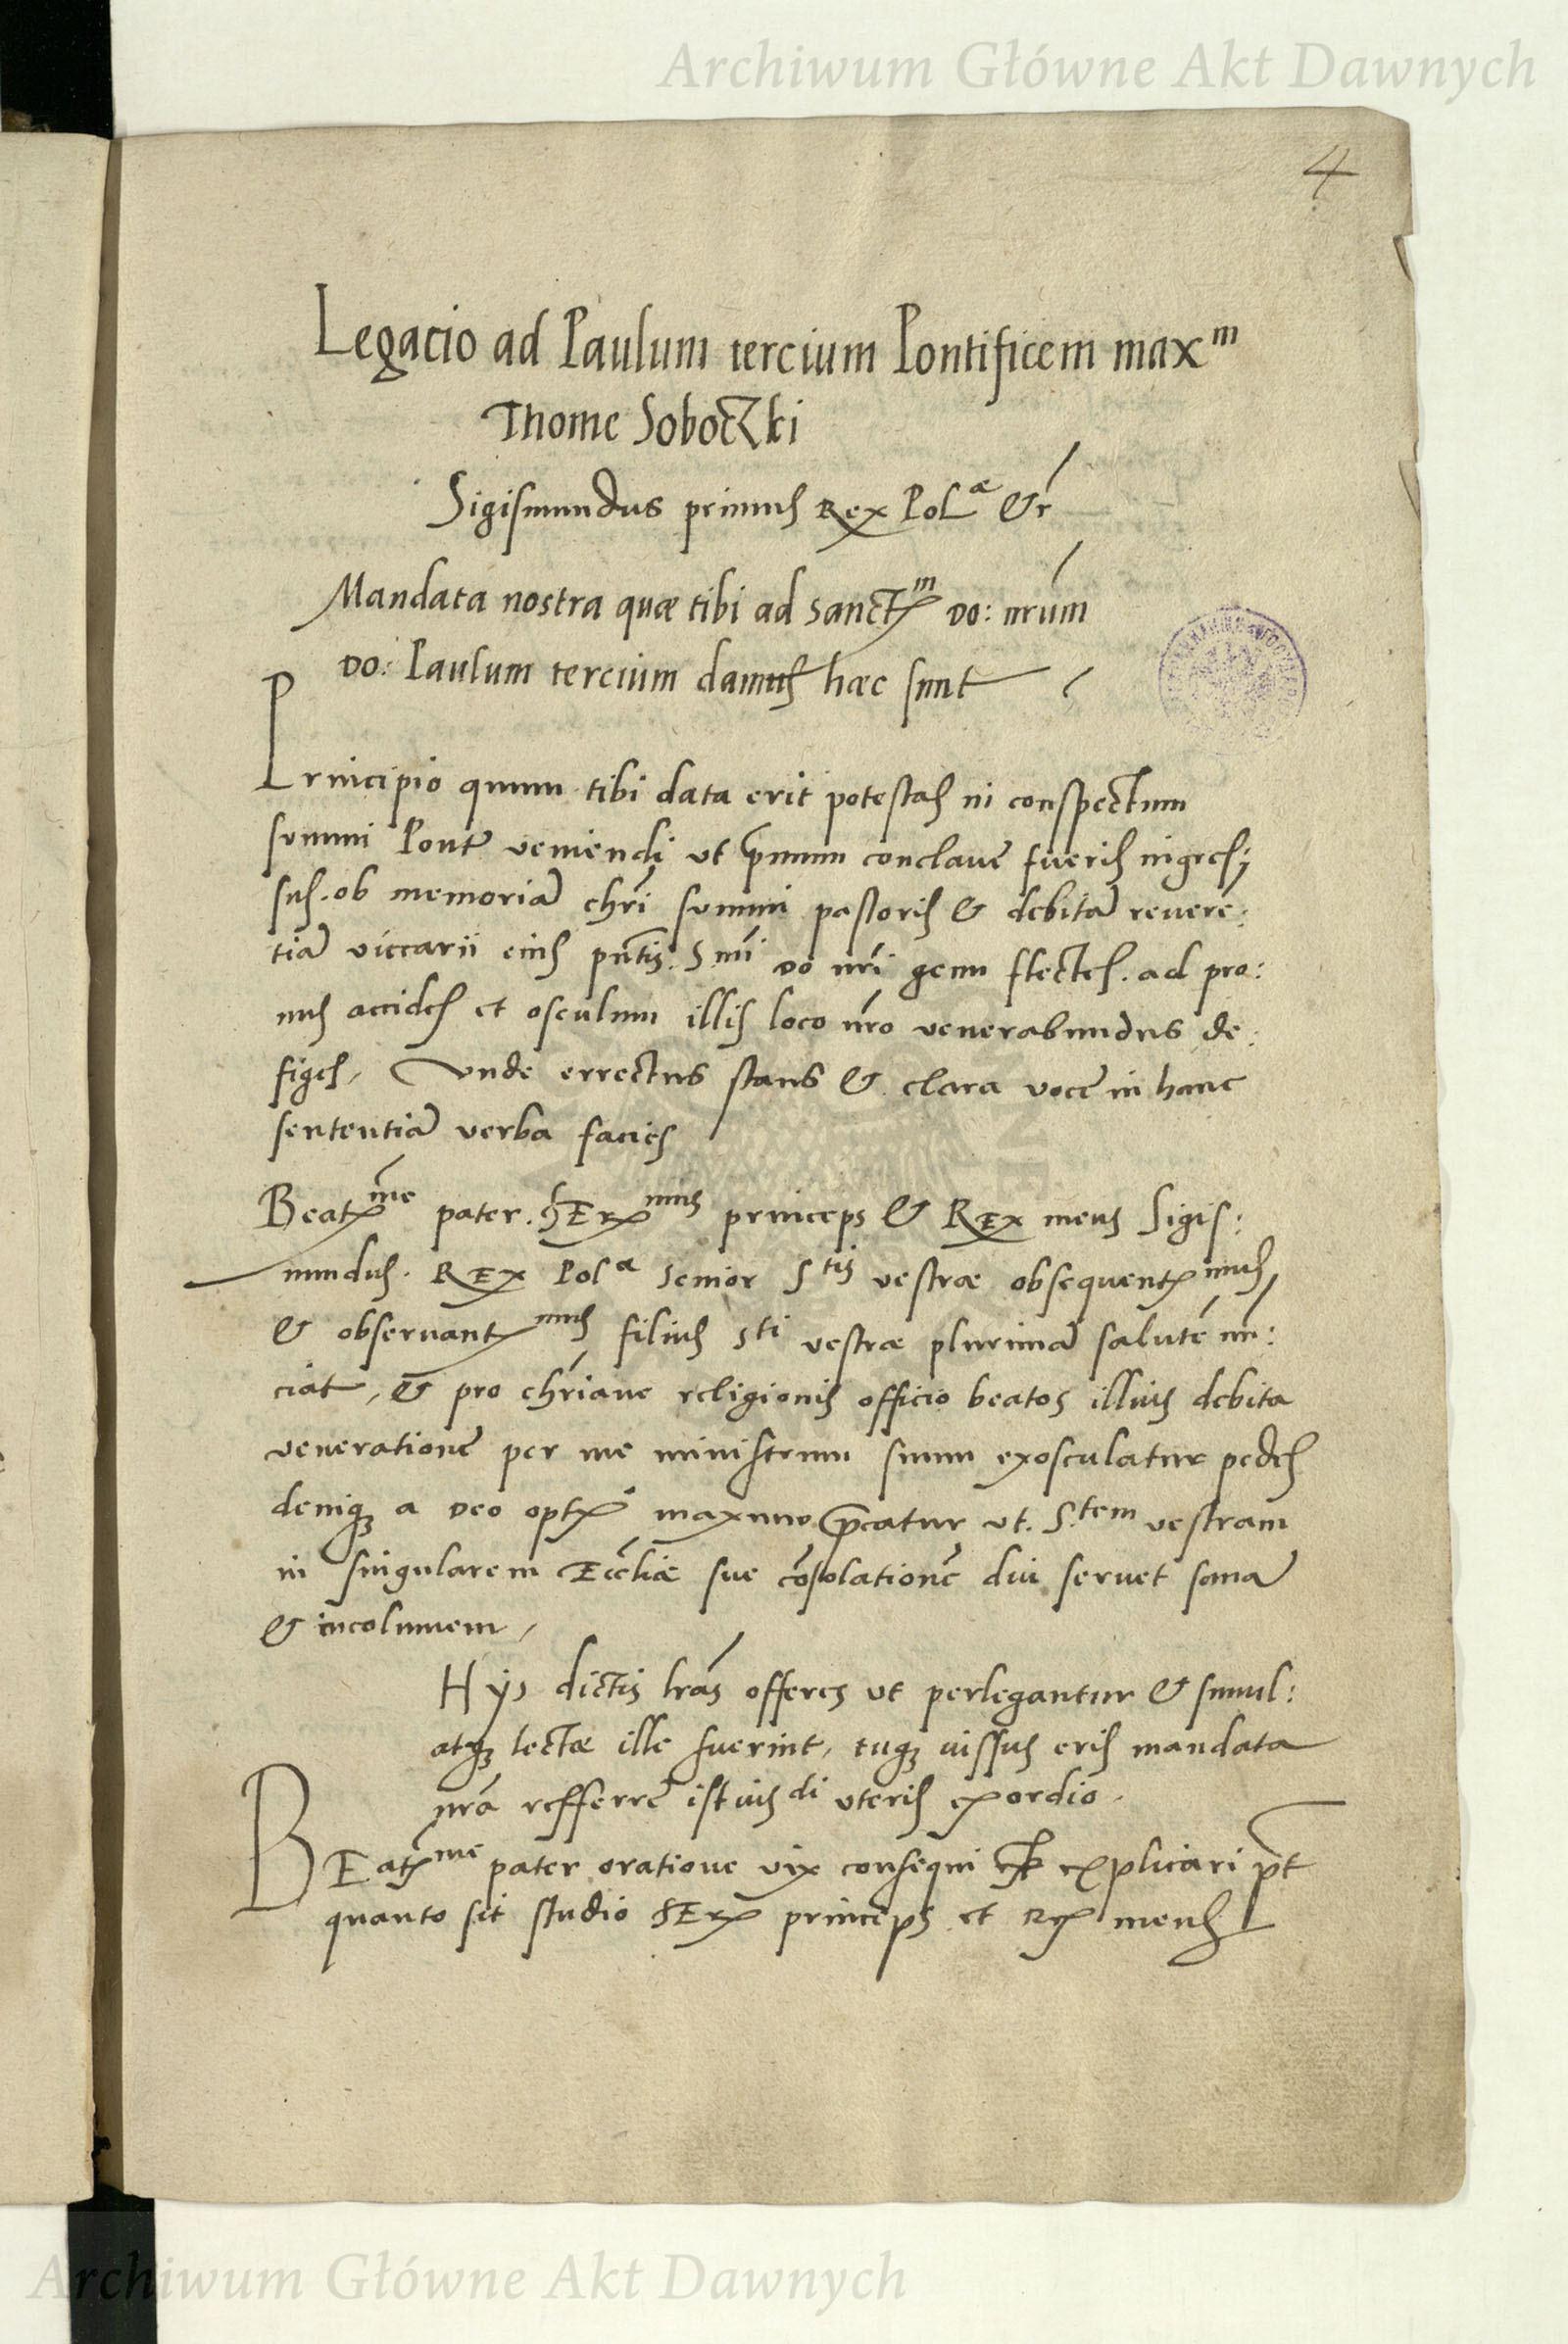 Archiwum Główne Akt Dawnych
4
Legacio ad Paulum tercium Pontificem max^m
Thome Soboczki
Sigismundus primus Rex Pol^ae &c
Mandata nostra quæ tibi ad sanctx^m do: nrum
do: Paulum tercium damus hæc sunt
Principio quum tibi data erit potestas in conspectum
summi Pont veniendi ut primum conclave fueris ingres;
sus. ob memoriā chri summi pastoris & debitā reverē:
tiā viccarii eius pntis. S.mi do nri genu flectes. ad pro:
nus accides et osculum illis loco nro venerabundus de:
figes, Unde errectus stans & clara voce in hanc
sententiā verba facies
Beatx^me pater. SErx^mus princeps & REx meus Sigis:
mundus. REx Pol^ae Senior S^tis vestræ obsequentx^mus,
& observantx^mus filius S^ti vestræ plurimā salutē nū:
ciat, & pro chriane religionis officio beatos illius debita
veneratione per me ministrum suum exosculatur pedes
deniqȝ a deo optx^o maximo precatur ut. S.^tem vestram
in singularem Eccliæ sue cōsolationē diu servet sanā
& incolumem,
Hys dictis lras offeres ut perlegantur & simul:
atqȝ lectæ ille fuerint, tuqȝ iussus eris mandata
nra refferre istius^di uteris exordio.
BEatx^me pater oratione vix consequi explicari pt
quanto sit studio SErx princeps et Rex meus
Archiwum Główne Akt Dawnych